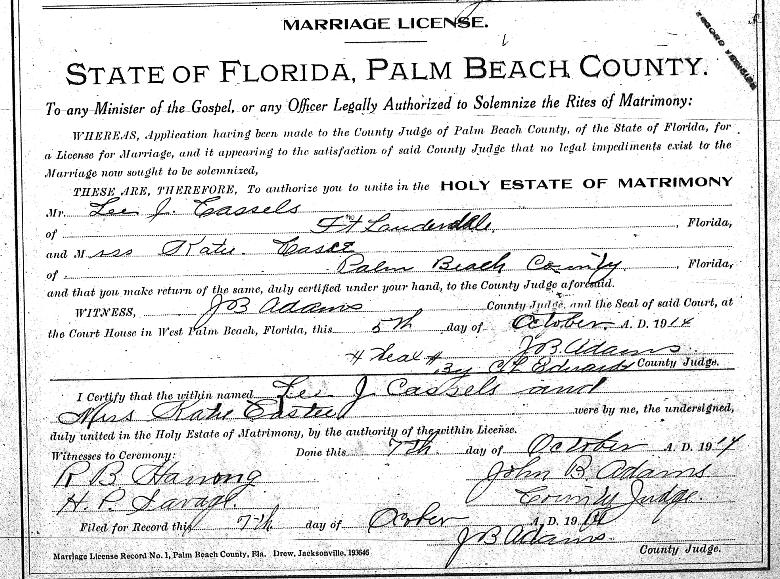 MARRIAGE LICENSE.
STATE OF FLORIDA, PALM BEACH COUNTY.
To any Minister of the Gospel, or any Officer Legally Authorized to Solemnize the Rites of Matrimony:
WHEREAS, Application having been made to the County Judge of Palm Beach County, of the State of Florida, for
a License for Marriage, and it appearing to the satisfaction of said County Judge that no legal impediments exist to the
Marriage now sought to be solemnized,
THESE ARE, THEREFORE, To authorize you to unite in the HOLY ESTATE OF MATRIMONY
Mr. Lee J. Cassels
of Ft Lauderdale, Florida,
and Miss Katie
of Palm Beach County Florida,
and that you make return of the same, duly certified under your hand, to the County Judge aforesaid.
WITNESS, J B Adams County Judge, and the Seal of said Court, at
the Court House in West Palm Beach, Florida, this 5th day of October A. D. 1914
J B Adams
Seal By County Judge.
I Certify that the within named Lee J. Cassels and
Miss Katie were by me, the undersigned,
duly united in the Holy Estate of Matrimony, by the authority of the within License.
Witnesses to Ceremony: Done this 7th day of October A. D. 1914
R B John B. Adams
H. P. Savage County Judge.
Filed for Record this 7th day of October A. D. 1914
J B Adams County Judge.
Marriage License Record No. 1, Palm Beach County, Fla. Drew, Jacksonville, 193646